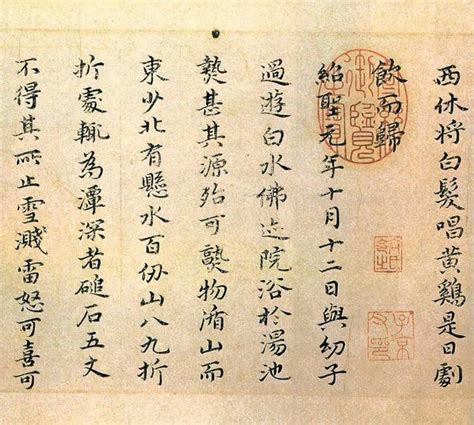 西休将白髮唱黃鷄是日劇
飲而歸
紹聖元年十月十二日與幼子
過遊白水佛迹院浴於湯池
熱甚其源殆可熟物循山而
東少北有懸水百仞山八九折
折處輒為潭深者磓石五丈
不得其所止雪濺雷怒可喜可